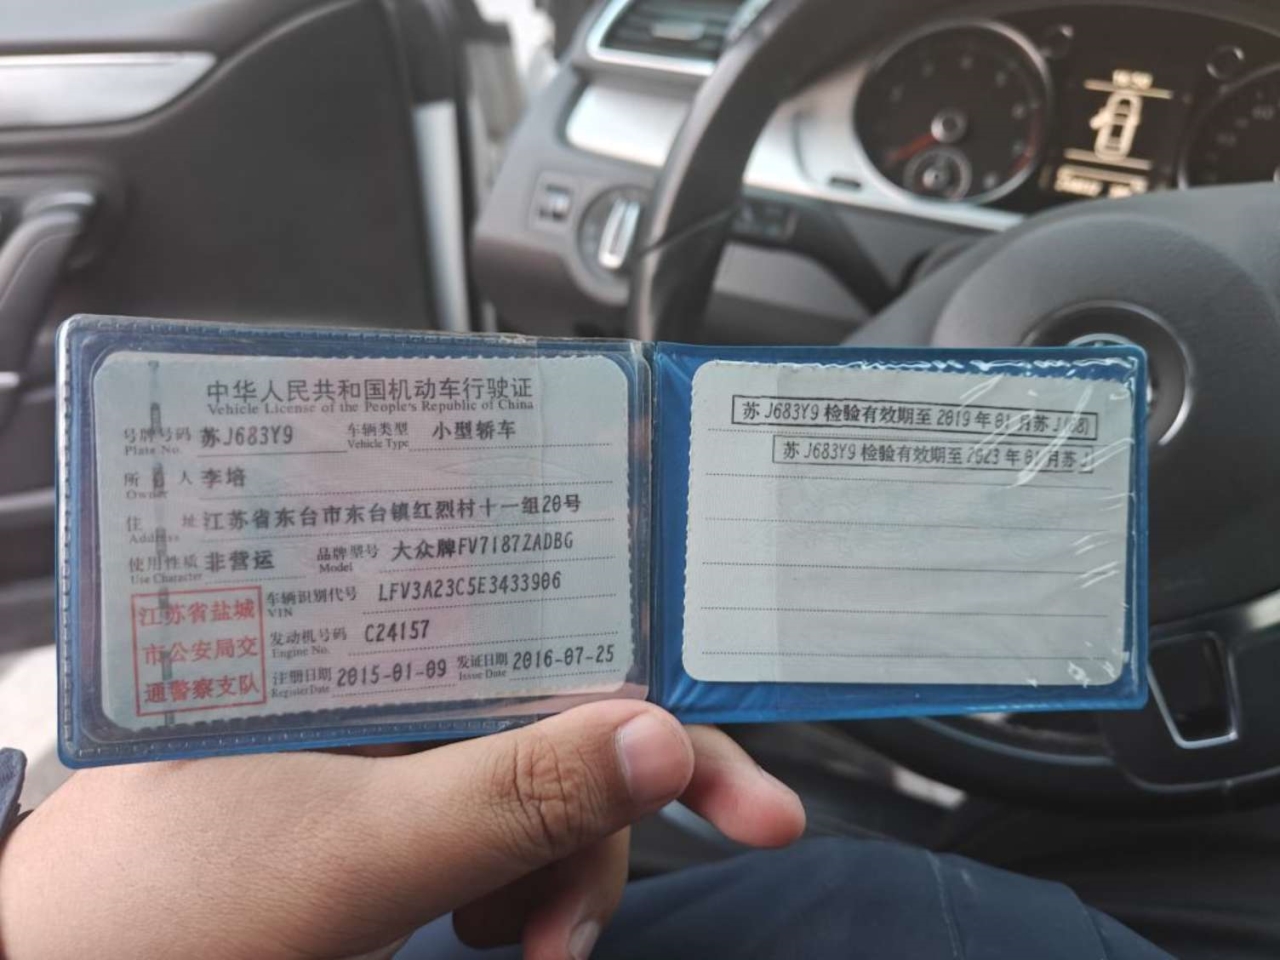 中华人民共和国机动车行驶证
Vehicle License of the People's Republic of China
号牌号码 苏J683Y9 车辆类型 小型轿车
Plate No. Vehicle Type
所有人 李培
Owner
住址 江苏省东台市东台镇红烈村十一组20号
Address
使用性质 非营运 品牌型号 大众牌FV7187ZADBG
Use Character Model
车辆识别代号 LFV3A23C5E3433906
VIN
发动机号码 C24157
Engine No.
注册日期 2015-01-09 发证日期 2016-07-25
Register Date Issue Date
江苏省盐城
市公安局交
通警察支队
苏J683Y9检验有效期至2019年01月苏J(08)
苏J683Y9检验有效期至2023年01月苏J